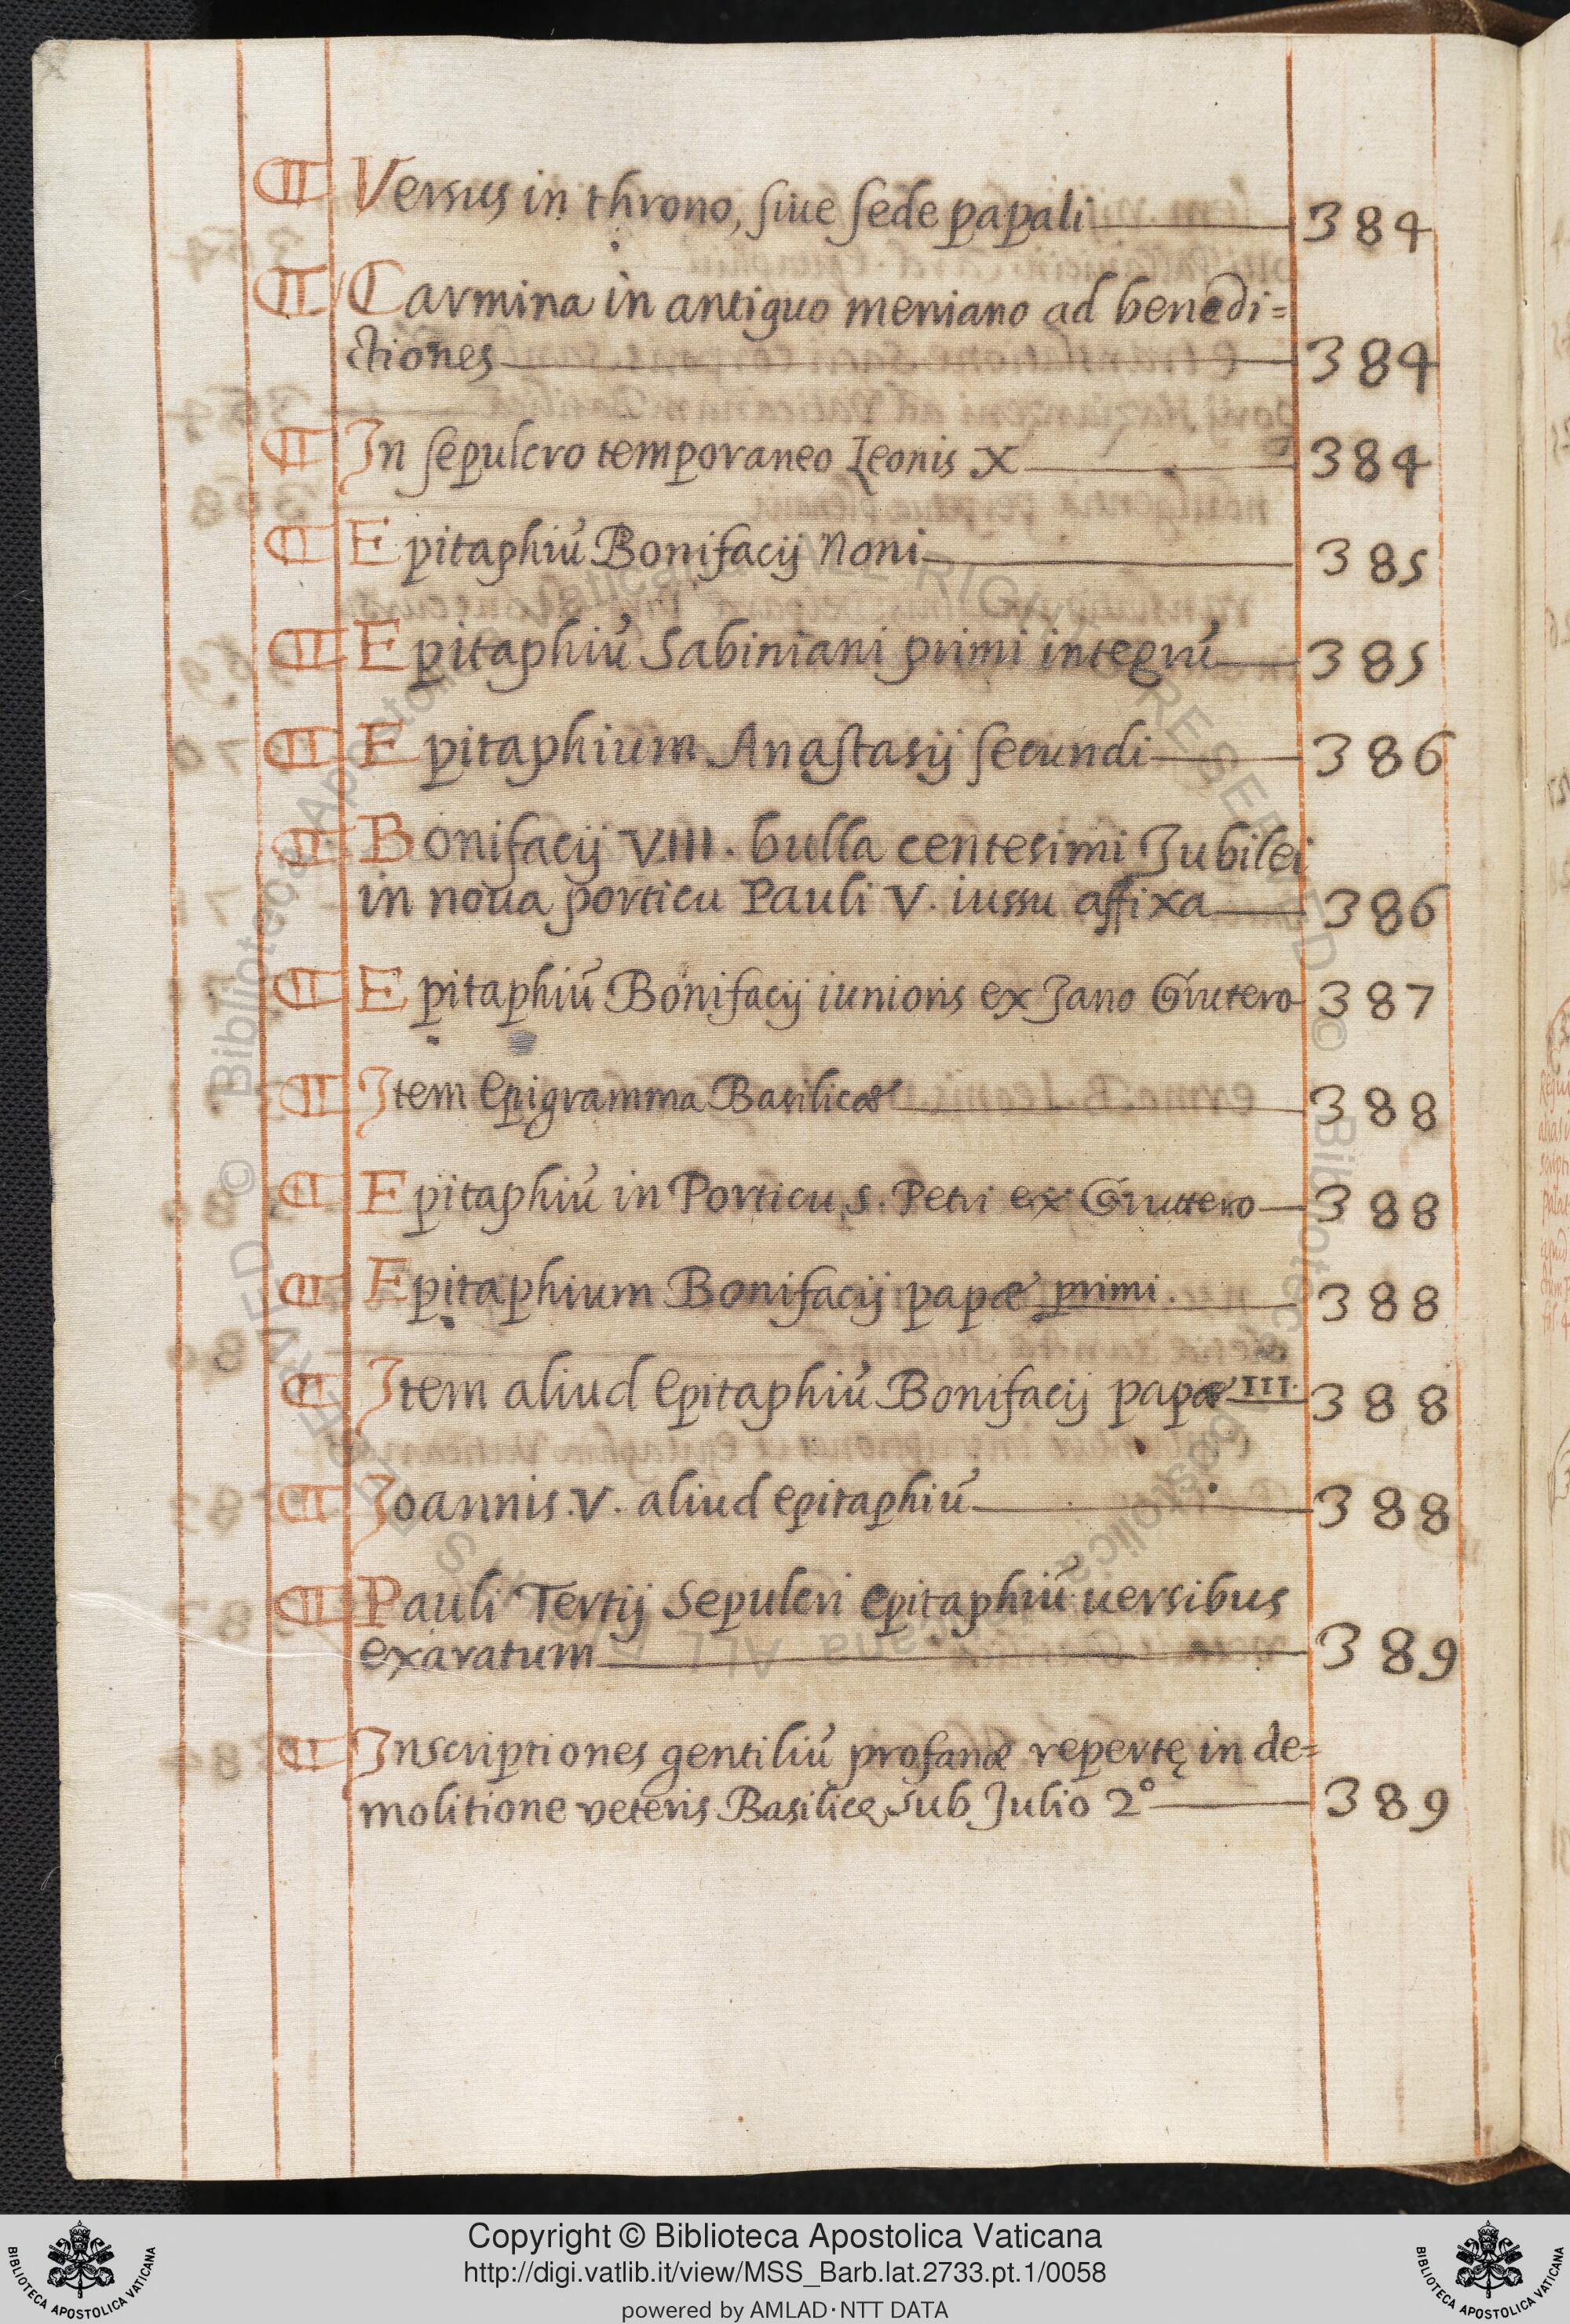 ¶ Versus in throno, ſiue ſede papali 384
¶ Carmina in antiquo meniano ad benedi=
ctiones 384
¶ In ſepulcro temporaneo Leonis X 384
¶ Epitaphiũ Bonifacij Noni 385
¶ Epitaphiũ Sabiniani primi integrũ 385
¶ Epitaphium Anaſtasij ſecundi 386
¶ Bonifacij VIII. bulla centesimi Jubilei
in noua porticu Pauli V. iussu affixa 386
¶ Epitaphiũ Bonifacij iunioris ex Jano Grutero 387
¶ Item Epigramma Basilicæ 388
¶ Epitaphiũ in Porticu s. Petri ex Gruttero 388
¶ Epitaphium Bonifacij papæ primi. 388
¶ Item aliud Epitaphiũ Bonifacij papæ III. 388
¶ Joannis .V. aliud epitaphiũ 388
¶ Pauli Tertij Sepulcri Epitaphiũ uersibus
exaratum 389
¶ Inscriptiones gentiliũ profanæ repertę in de=
molitione veteris Basilicę sub Julio 2° 389
Copyright © Biblioteca Apostolica Vaticana
http://digi.vatlib.it/view/MSS_Barb.lat.2733.pt.1/0058
powered by AMLAD·NTT DATA
BIBLIOTECA APOSTOLICA VATICANA
BIBLIOTECA APOSTOLICA VATICANA